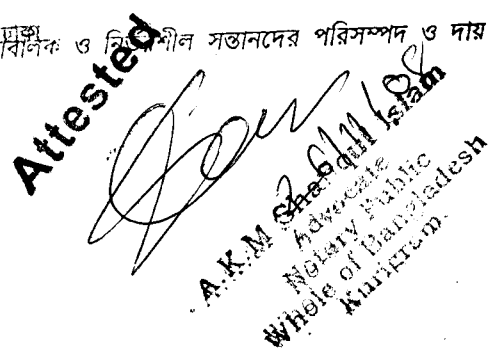 ও নির্ভরশীল সন্তানদের পরিসম্পদ ও দায়
Attested
A. K. M Shafiqul Islam
Advocate
Notary Public
Whole of Bangladesh
Kurigram.